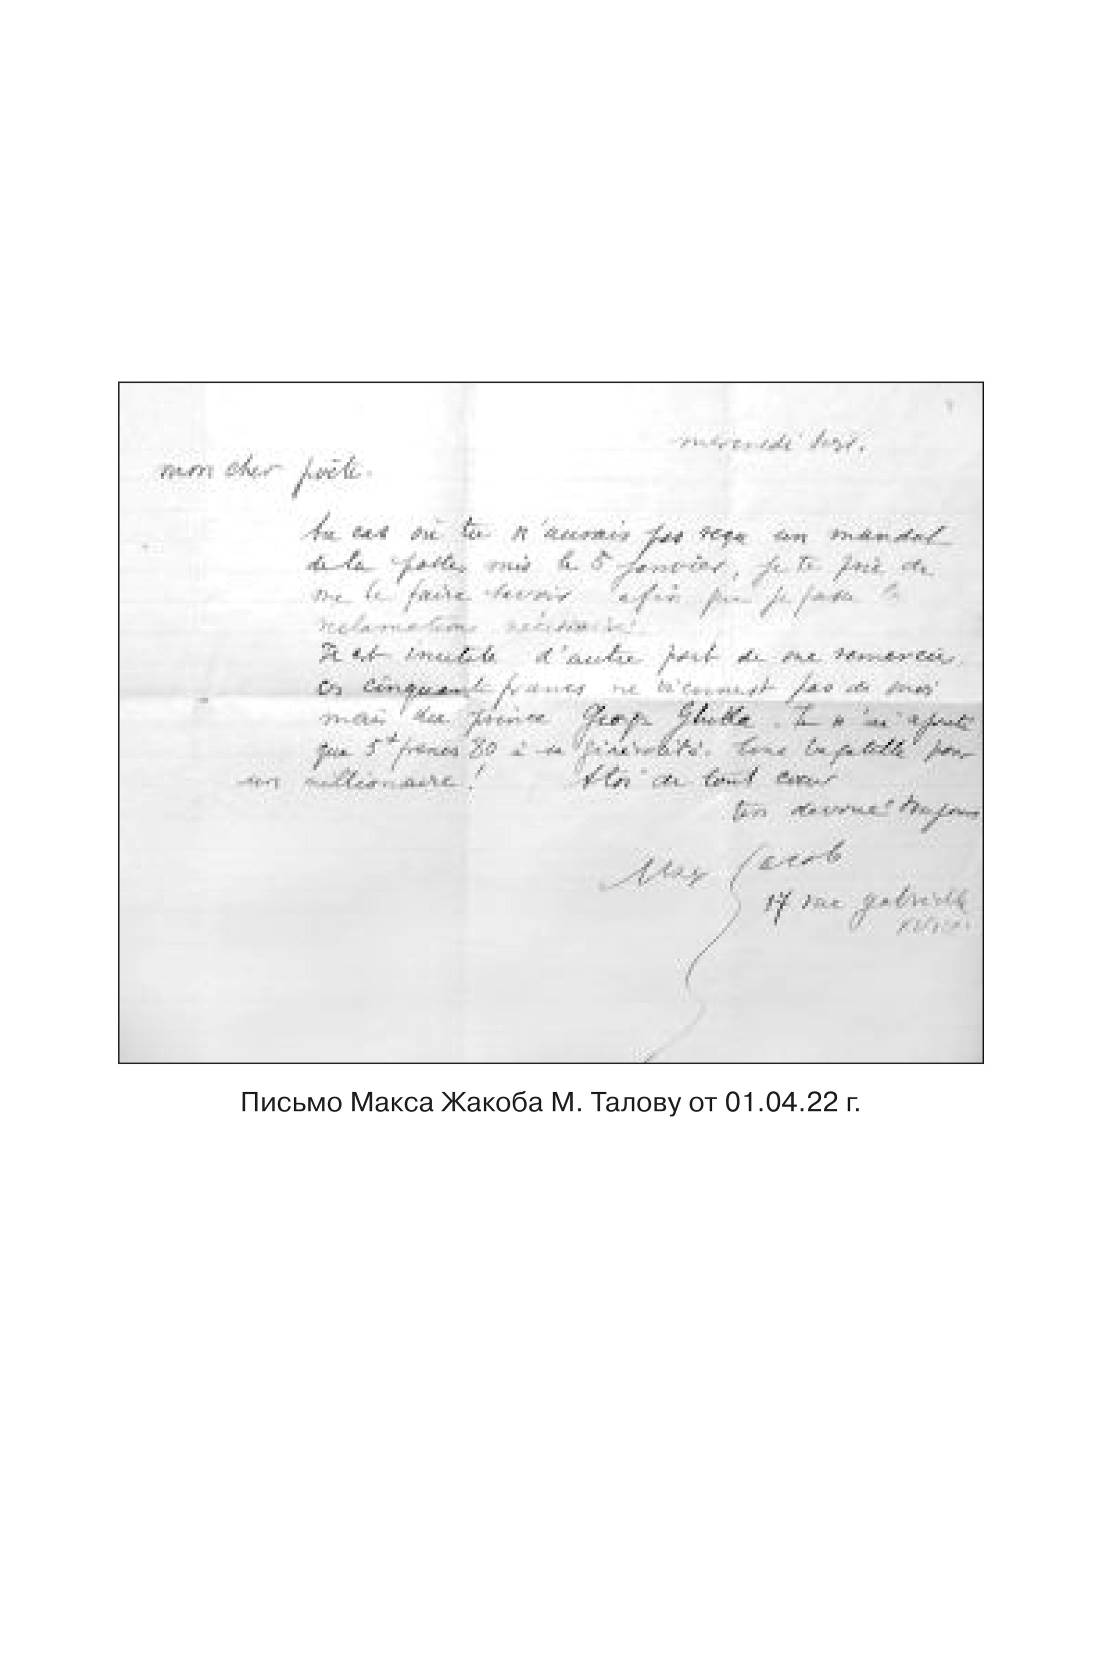 mercredi
mon cher poète.
Au cas où tu n'aurais pas reçu un mandat
de la poste, mis le 5 janvier, je te prie de
me le faire savoir afin que je fasse la
réclamation nécessaire.
Il est inutile d'autre part de me remercier.
ces cinquante francs ne viennent pas de moi
mais du prince Georges Ghika. Je n'ai ajouté
que 5 francs 80 à sa générosité. bagatelle pour
un millionaire! A toi de tout cœur
ton dévoué toujours
Max Jacob
17 rue gabrielle
Письмо Макса Жакоба М. Талову от 01.04.22 г.